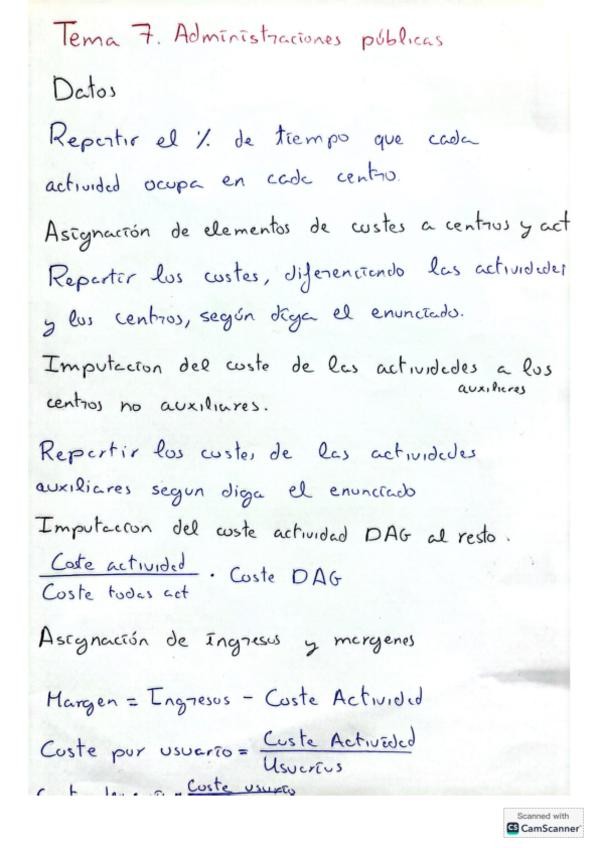 Tema 7. Administraciones públicas
Datos
Repartir el % de tiempo que cada
actividad ocupa en cada centro.
Asignación de elementos de costes a centros y act
Repartir los costes, diferenciando las actividades
y los centros, según diga el enunciado.
Imputacion del coste de las actividades a los
auxiliares
centros no auxiliares.
Repartir los costes de las actividades
auxiliares segun diga el enunciado
Imputacion del coste actividad DAG al resto.
Coste actividad
Coste todas act
· Coste DAG
Asignación de ingresos y margenes
Margen = Ingresos - Coste Actividad
Coste por usuario = Coste Actividad
Usuarios
Coste usuario
Scanned with
CS CamScanner